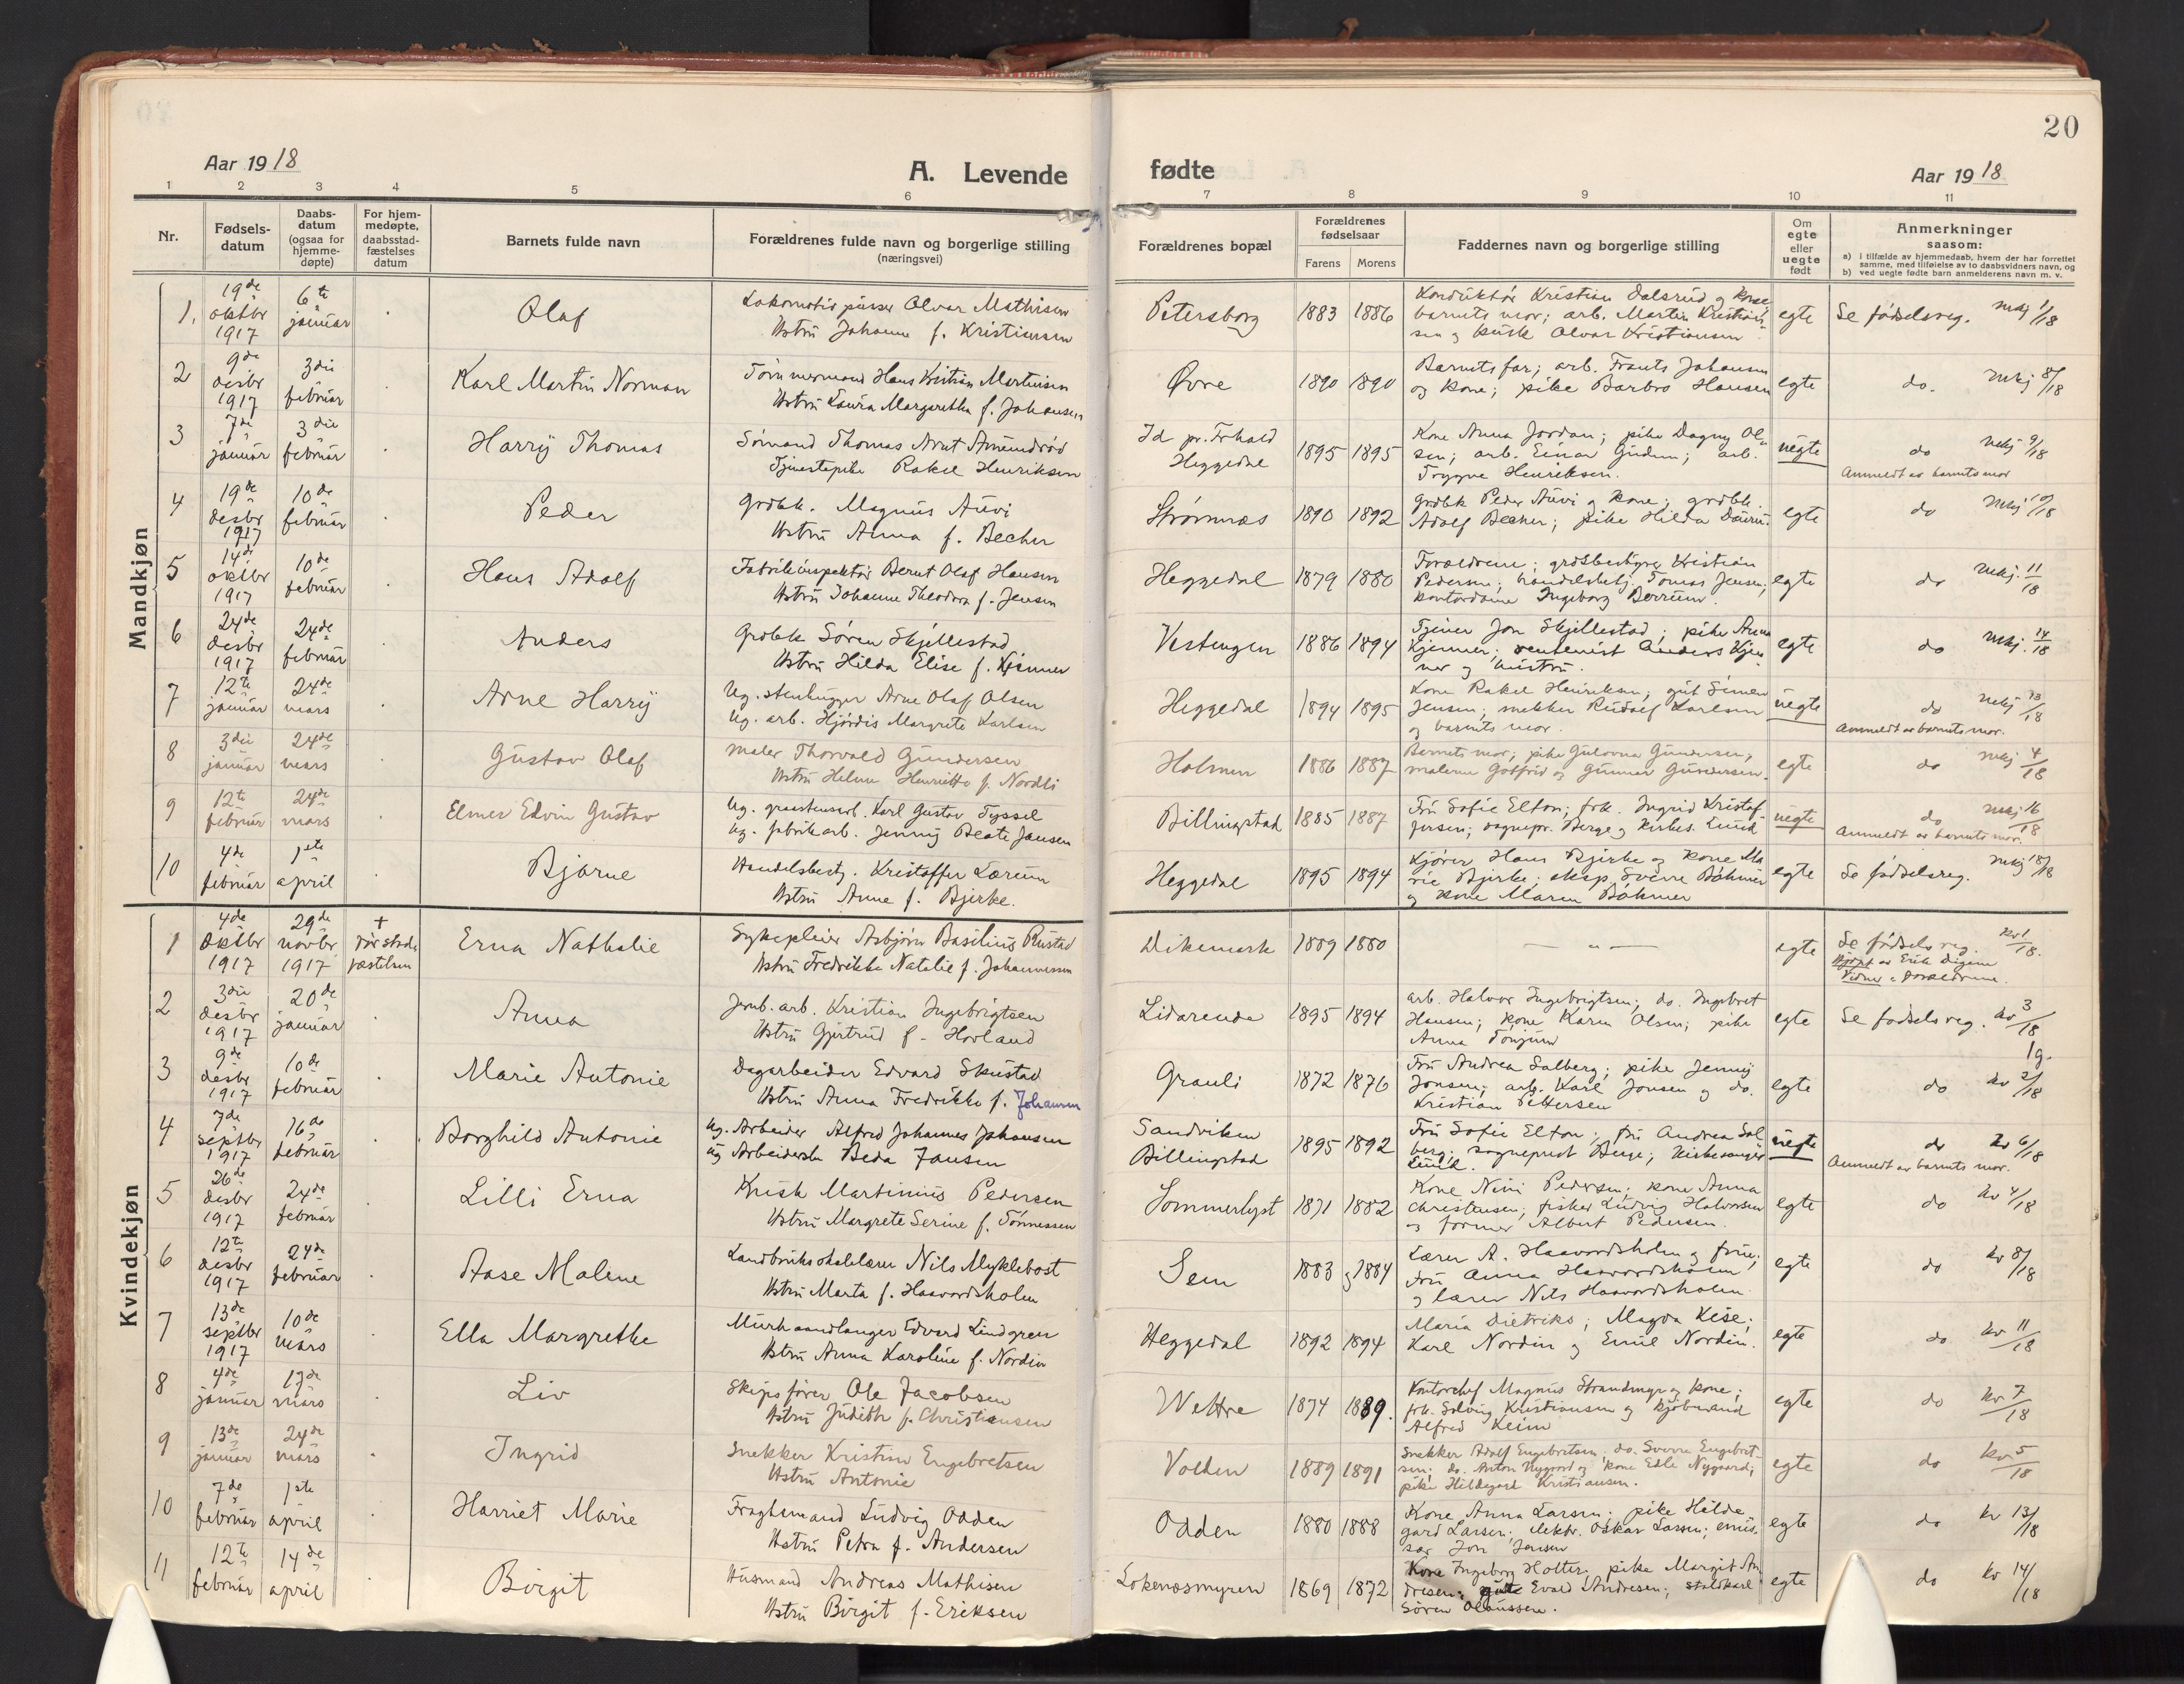 20
Aar 1918
A. Levende
fødte
Aar 1918
1 2 3 4 5 6 7 8 9 10 11
Nr.
Fødsels-
datum
Daabs-
datum
(ogsaa for
hjemme-
døpte)
For hjem-
medøpte,
daabsstad-
fæstelses
datum
Barnets fulde navn
Forældrenes fulde navn og borgerlige stilling
(næringsvei)
Forældrenes bopæl
Forældrenes
fødselsaar
Farens Morens
Faddernes navn og borgerlige stilling
Om
egte
eller
uegte
født
Anmerkninger
saasom:
a) i tilfælde av hjemmedaab, hvem der har forrettet
samme, med tilføielse av to daabsvidners navn, og
b) ved uegte fødte barn anmelderens navn m. v.
Mandkjøn
1. 19de oktbr 1917 6te januar Olaf
Lokomotivpusser Olvar Mathisen
Hstru Johanne f. Kristiansen
Petersborg 1883 1886
Konduktør Kristian Dalsrud og kone
barnets mor; arb. Martin Kristian-
sen og kusk Olvar Kristiansen
egte Se fødselsreg. mkj 1/18
2 9de desbr 1917 3die februar Karl Martin Norman
Tømmermand Hans Kristian Martinsen
Hstru Laura Margaretha f. Johansen
Øvre 1890 1890
Barnets far; arb. Frants Johansen
og kone; pike Barbro Hansen
egte do. mkj 8/18
3 7de januar 3die februar Harry Thomas
Sømand Thomas Arnt Amundrød
Tjenestepike Rakel Henriksen
Id pr. Frhald
Heggedal 1895 1895
Kone Anna Jordan; pike Dagny Ol-
sen; arb. Einar Gudem; arb.
Trygve Henriksen.
uegte do mkj 9/18
Anmeldt av barnets mor
4 19de desbr 1917 10de februar Peder
Grdbk. Magnus Auvi
Hstru Anna f. Becher
Strømnæs 1890 1892
Grdbk Peder Auvi og kone; grdbk.
Adolf Becher; pike Hilda
egte do mkj 10/18
5 14de oktbr 1917 10de februar Hans Adolf
Fabrikinspektør Bernt Olaf Hansen
Hstru Johanne Theodora f. Jensen
Heggedal 1879 1880
Forældrene; grdsbestyrer Kristian
Pedersen; handelsbetj. Tomas Jensen;
kontordame Ingeborg Berrum.
egte do mkj. 11/18
6 24de desbr 1917 24de februar Anders
Grdbk Søren Skjellestad
Hstru Hilda Elise f. Kjenner
Vestengen 1886 1894
Tjener Jon Skjellestad; pike Anna
Kjenner; rentenist Anders Kjen-
ner og hustru.
egte do mkj. 14/18
7 12te januar 24de mars Arne Harry
Ug. stenhugger Arne Olaf Olsen
Ug. arb. Hjørdis Margrete Karlsen
Heggedal 1894 1895
Kone Rakel Henriksen; gut Simen
Jensen; snekker Rudolf Karlsen
og barnets mor.
uegte do mkj 13/18
Anmeldt av barnets mor.
8 3die januar 24de mars Gustav Olaf
Maler Thorvald Gundersen
Hstru Helene Henriette f. Nordli
Holmen 1886 1887
Barnets mor; pike Gulovna Gundersen,
malerne Gotfrid og Gunnar Gundersen.
egte do mkj 4/18
9 12te februar 24de mars Elmer Edvin Gustav
Ug. graastensarb. Karl Gustav Tyssel
Ug. fabrikarb. Jenny Beate Jansen
Billingstad 1885 1887
Fru Sofie Elton; frk. Ingrid Kristof-
fersen; sognepr. Berge og kirkes. Lund
uegte do mkj 16/18
Anmeldt av barnets mor.
10 4de februar 1ste april Bjarne
Handelsbesty. Kristoffer Lærum
Hstru Anne f. Bjerke.
Heggedal 1895 1894
Kjører Hans Bjerke og kone Ma-
rie Bjerke; eksp. Sverre Bøhmer
og kone Maren Bøhmer
egte Se fødselsreg. mkj 18/18
Kvindekjøn
1 4de oktbr 1917 29de novbr 1917 + før stad- fæstelsen Erna Nathalie
Sykepleier Asbjørn Basilius Rustad
Hstru Fredrikke Natalie f. Johannessen
Dikemark 1889 1880
— „ —
egte Se fødselsreg. kv 1/18.
Hjdpt av Erik Digene
Vidner: Forældrene.
2 3die desbr 1917 20de januar Anna
Jernb. arb. Kristian Ingebrigtsen
Hstru Gjertrud f. Hovland
Lidarende 1895 1894
arb. Halvor Ingebrigtsen; do. Ingebret
Hansen; kone Karen Olsen; pike
Anna Tonjum
egte Se fødselsreg. kv 3/18
3 9de desbr 1917 10de februar Marie Antonie
Dagarbeider Edvard Skustad
Hstru Anna Fredrikke f. Johansen
Grauli 1872 1876
Fru Andrea Salberg; pike Jenny
Jonsen; arb. Karl Jonsen og do.
Kristian Pettersen
egte do 19. kv 2/18
4 7de septbr 1917 16de februar Borghild Antonie
Ug. Arbeider Alfred Johannes Johansen
Ug Arbeiderske Beda Jansen
Sandviken
Billingstad 1895 1892
Fru Sofie Elton; fru Andrea Sal-
berg; sogneprest Berge; kirkesanger
Lund.
uegte do kv 6/18
Anmeldt av barnets mor.
5 26de desbr 1917 24de februar Lilli Erna
Kusk Martinius Pedersen
Hstru Margrete Serine f. Tønnessen
Sommerlyst 1871 1882
Kone Nini Pedersen; kone Anna
Christensen; fisker Ludvig Halvorsen
og former Albert Pedersen.
egte do kv 4/18
6 12te desbr 1917 24de februar Aase Malene
Landbruksskolelærer Nils Myklebost
Hstru Marta f. Haavardsholm
Sem 1883 1884
Lærer A. Haavardsholm og frue;
fru Anna Haavardsholm
og lærer Nils Haavardsholm.
egte do kv 8/18
7 13de septbr 1917 10de mars Ella Margrethe
Murhaandlanger Edvard Lindgren
Hstru Anna Karoline f. Nordin
Heggedal 1892 1894
Maria Dietriks; Magda Keise;
Karl Nordin og Emil Nordin.
egte do kv 11/18
8 4de januar 17de mars Liv
Skipsfører Ole Jacobsen
Hstru Judith f. Christiansen
Wettre 1874 1889.
Kontorchef Magnus Strandmyr og kone;
frk. Solveig Kristiansen og kjøbmand
Alfred Keim
egte do kv 7/18
9 13de januar 24de mars Ingrid
Snekker Kristian Engebretsen
Hstru Antonie
Volden 1889 1891
Snekker Adolf Engebretsen; do. Sverre Engebret-
sen; do. Anton Nygaard og kone Edle Nygaard;
pike Hildegard Kristiansen.
egte do kv 5/18
10 7de februar 1ste april Harriet Marie
Fragtemand Ludvig Odden
Hstru Petra f. Andersen
Odden 1880 1888
Kone Anna Larsen; pike Hilde-
gard Larsen; elektr. Oskar Larsen; emis-
sær Jon Jensen
egte do kv 13/18
11 12te februar 14de april Birgit
Husmand Andreas Mathisen
Hstru Birgit f. Eriksen
Lokenæsmyren 1869 1872
Kone Ingeborg Holter, pike Margit An-
dresen; gutt Evald Andresen; staldkarl
Søren Olaussen.
egte do kv 14/18